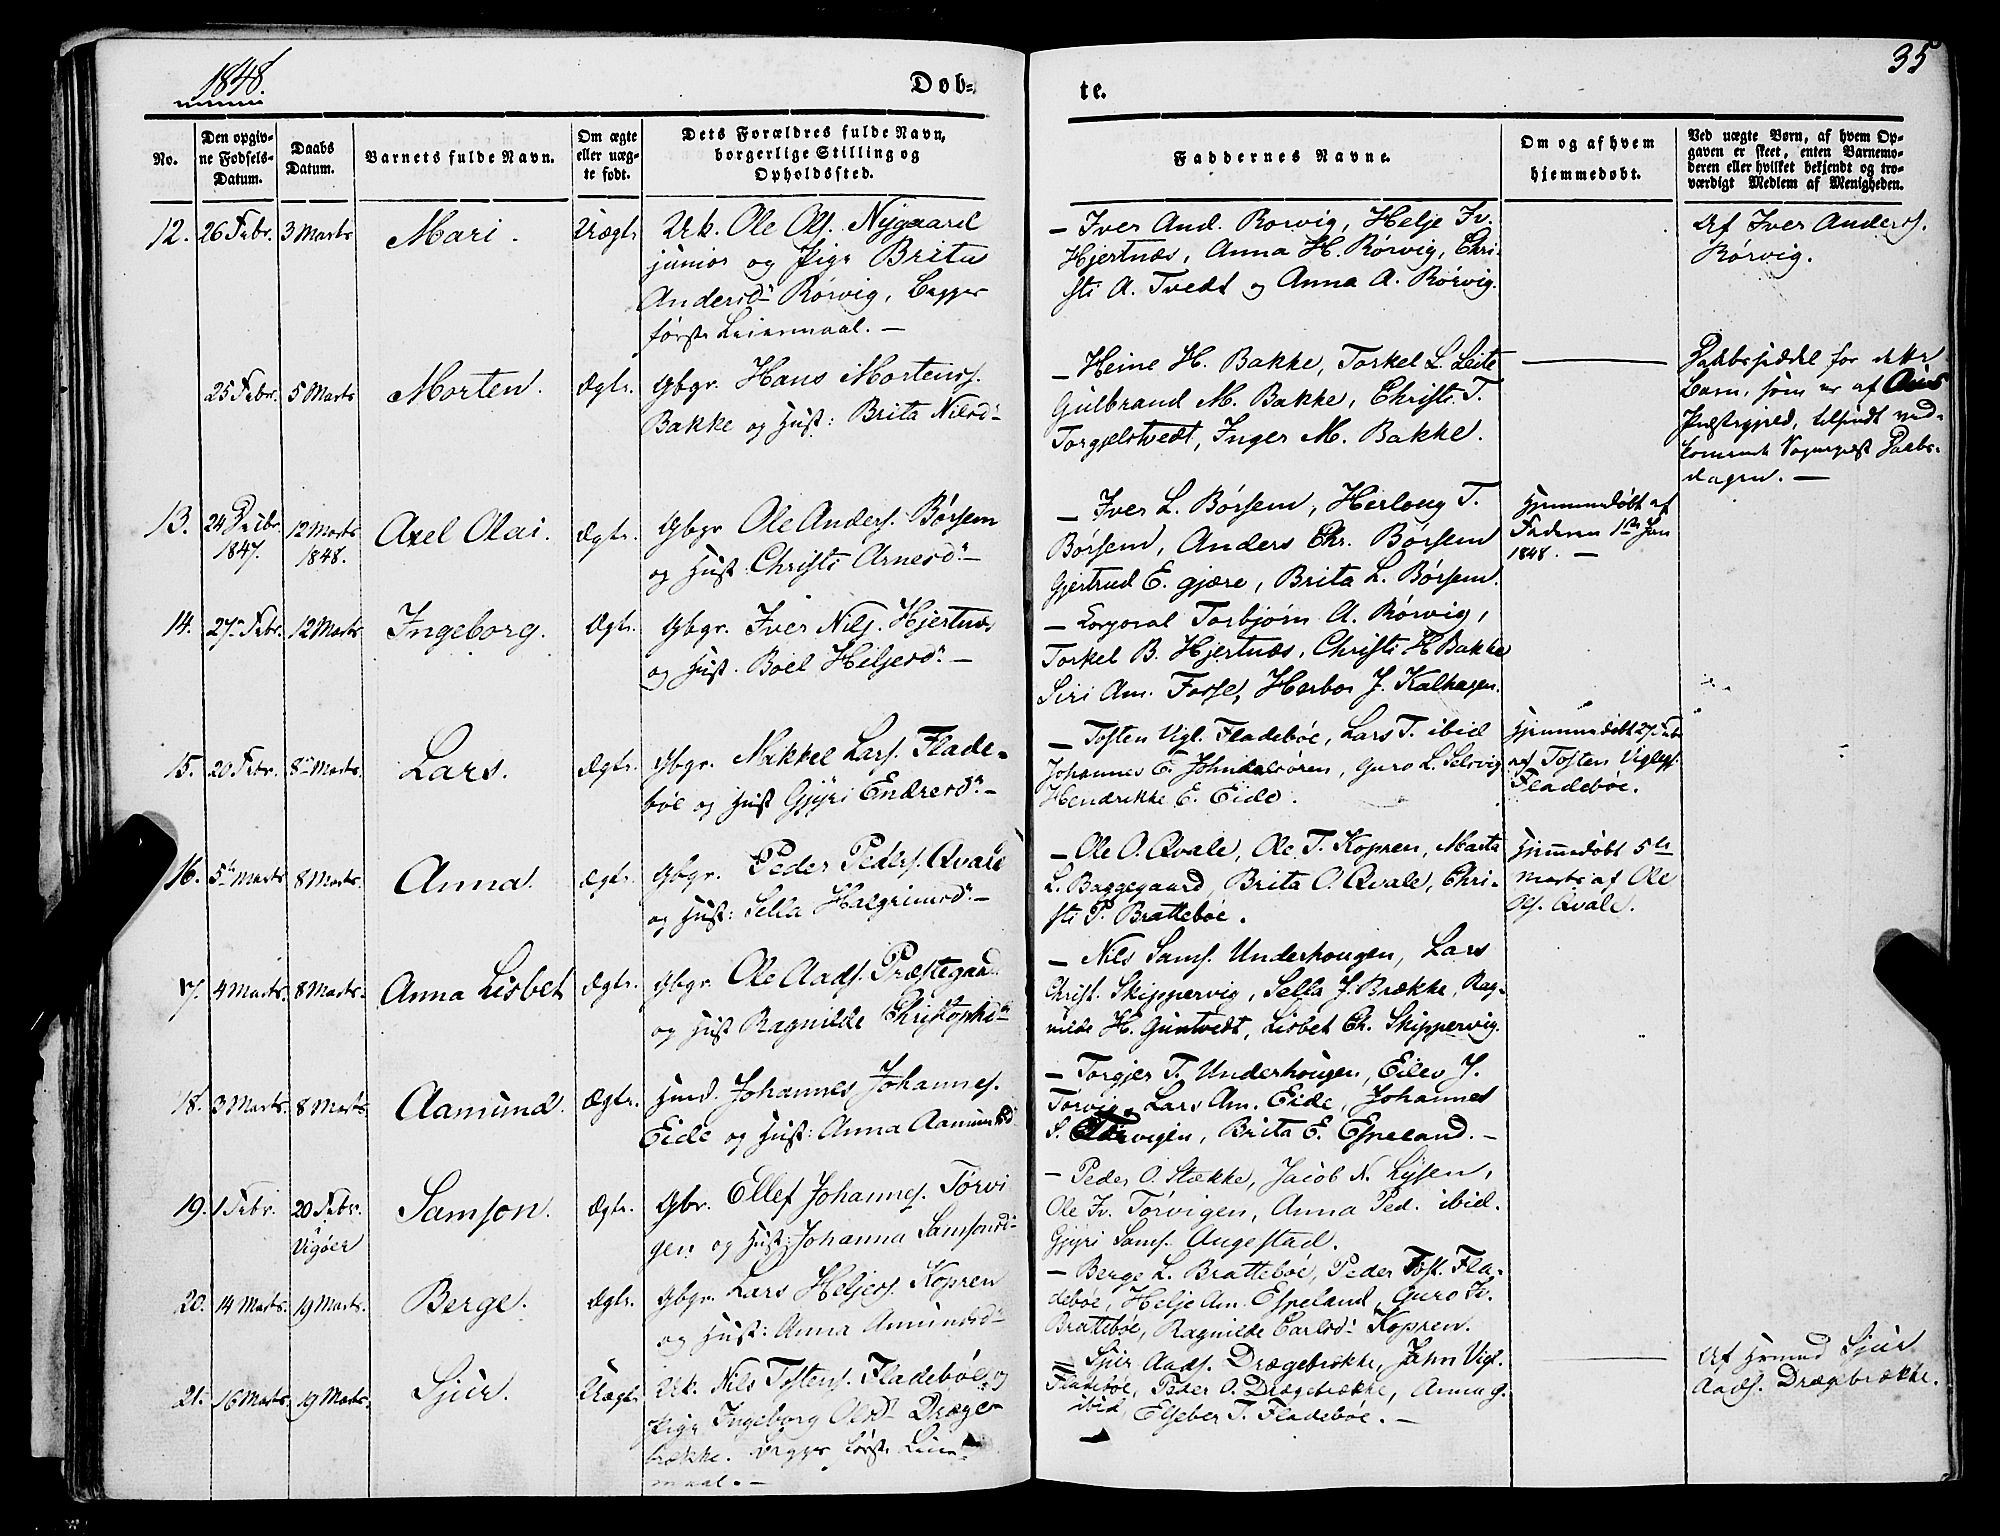 1848.
Døb-
te.
35
No.
Den opgiv-
ne Fødsels-
Datum.
Daabs
Datum.
Barnets fulde Navn.
Om ægte
eller uæg-
te født.
Dets Forældres fulde Navn,
borgerlige Stilling og
Opholdssted.
Faddernes Navne.
Om og af hvem
hjemmedøbt.
Ved uægte Børn, af hvem Op-
gaven er skeet, enten Barnemo-
deren eller hvilket bekjendt og tro-
værdigt Medlem af Menigheden.
12. 26 Febr. 3 Marts Mari. Uægte
Uk. Ole Ols. Nygaard
junior og Pige Brita
Andersdr Rørvig, Begges
første Leiermaal. —
— Iver And. Rørvig, Helje Iv.
Hjertnæs, Anna H. Rørvig, Chri-
sti A. Tvedt og Anna A. Rørvig.
Af Iver Anders.
Rørvig.
25 Febr. 5 Marts Morten. Ægte.
Gbgr. Hans Mortens.
Bakke og Hust: Brita Nilsdr
— Heine H. Bakke, Torkel L. Leite
Gulbrand M. Bakke, Christi T.
Torgjelstvedt, Inger M. Bakke.
Daabssædel for dette
Barn, som er af
Præstegjeld, tilsendt ved-
Sognepræst Daabs-
dagen. —
13. 24 Decbr. 1847. 12 Marts 1848. Axel Olai. Ægte.
Gbgr Ole Anders. Børsem
og Hust. Christi Arnesdr —
— Iver L. Børsem, Herloug T.
Børsem, Anders Chr. Børsem
Gjertrud E. gjære, Brita L. Børsem.
Hjemmedøbt af
Faderen 1ste Jan
1848. —
14. 27 Febr. 12 Marts Ingeborg. Ægte.
Gbgr. Iver Nils. Hjertnæs
og Hust. Boel Heljesdr. —
— Corporal Torbjørn A. Rørvig,
Torkel B. Hjertnæs, Christi H Bakke
Siri Am. Fosse, Herbor J. Kalhagen.
15. 20 Febr. 8 Marts. Lars. Ægte.
Gbgr. Mikkel Lars. Flade-
bøe og Hust Gjyri Endresdr. —
— Tosten Vigl. Fladebøe, Lars T. ibid
Johannes E. Johndalsøren, Guro L. Selsvig
Hendrikke E. Eide.
Hjemmedøbt 27 Feb
af Tosten Vigleys.
Fladebøe.
16. 5te Marts 8 Marts. Anna. Ægte.
Gbgr. Peder Peders. Qvale
og Hust: Sella Halgrimsdr. —
— Ole O. Qvale, Ole T. Kopren, Marta
L. Baggegaard, Brita O. Qvale, Chri-
sti P. Brattebøe.
Hjemmedøbt 5te
Marts af Ole
Ols. Qvale.
17. 4 Marts. 8 Marts. Anna Lisbet Ægte.
Gbgr. Ole Aads. Præstegaard
og Hust Ragnilde Christophdr
— Nils Sams. Underhougen, Lars
Christ. Skippervig, Sella J. Brække, Rag-
nilde H. Guntvedt, Lisbet Ch. Skippervig.
18. 3 Marts. 8 Marts Aamund. Ægte.
Husmd. Johannes Johannes.
Eide og Hust: Anna Aamundsd
— Torgjer T. Underhougen, Eilev J.
Torvig, Lars Am. Eide, Johannes
S. Torvigen, Brita E. Espeland. —
19. 1 Febr. 20 Febr. Vigøer Samson. Ægte.
Gbr. Ellef Johannes. Tørvi
gen og Hust: Johanna Samsonsdr
— Peder O. Stække, Jacob N. Lysen,
Ole Iv. Torvigen, Anna Ped. ibid.
Gjyri Sams. Augestad.
20. 14 Marts. 19 Marts. Berge. Ægte.
Gbgr. Lars Heljes. Kopren
og Hust: Anna Amundsdr
— Berge L. Brattebøe, Peder Tost. Fla-
debøe, Helje Am. Espeland, Guro Iv.
Brattebøe, Ragnilde Carlsdr. Kopren.
21. 16 Marts. 19 Marts. Sjur. Uægte
Uk. Nils Tostens. Fladebøe og
Pige Ingeborg Olsdr Dræge-
brække. Begges første Leier-
maal. —
= Sjur Aads. Drægebrække, John Vigl.
Fladebøe, Peder O. Drægebrække, Anna G.
ibid, Elseber T. Fladebøe. —
Af Husmd Sjur
Aads. Drægebrække.